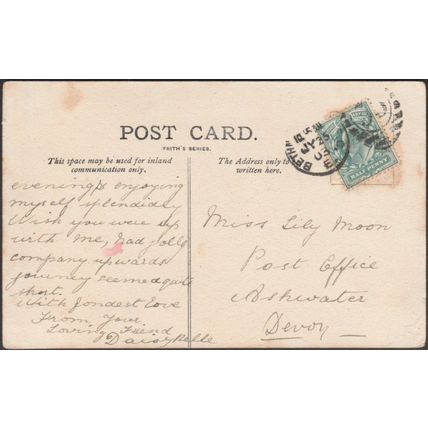 POST CARD.
FRITH'S SERIES.
This space may be used for inland
communication only.
The Address only to
written here.
evening & enjoying
myself splendidly
Wish you were up
with me, had jolly
company upwards
journey seemed quite
short.
With fondest love
From Your
Loving Friend
Daisy Belle
Miss Lily Moon
Post Office
Ashwater
Devon
HALF PENNY